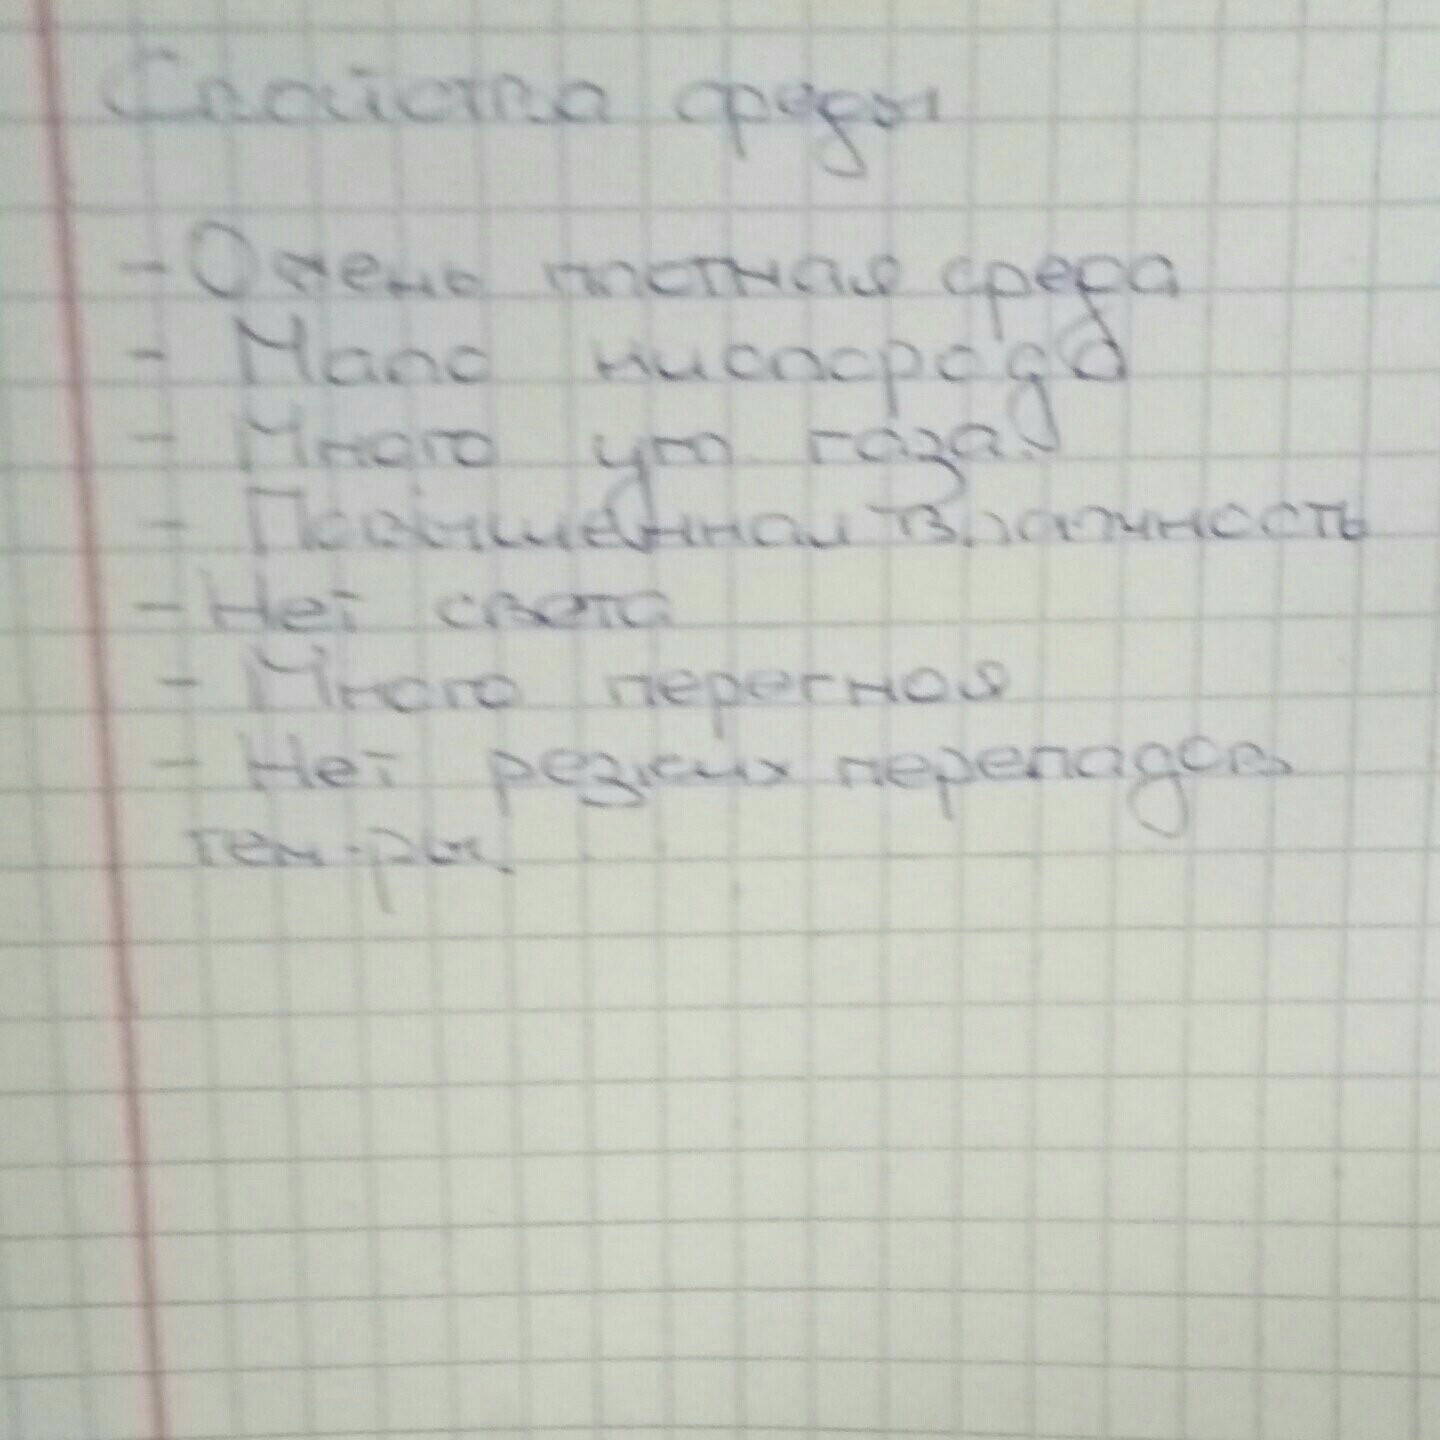 Свойства среды
- Очень плотная среда
- Мало кислорода
- Много угл газа
- Повышенная влажность
- Нет света
- Много перегноя
- Нет резких перепадов
тем-ры.